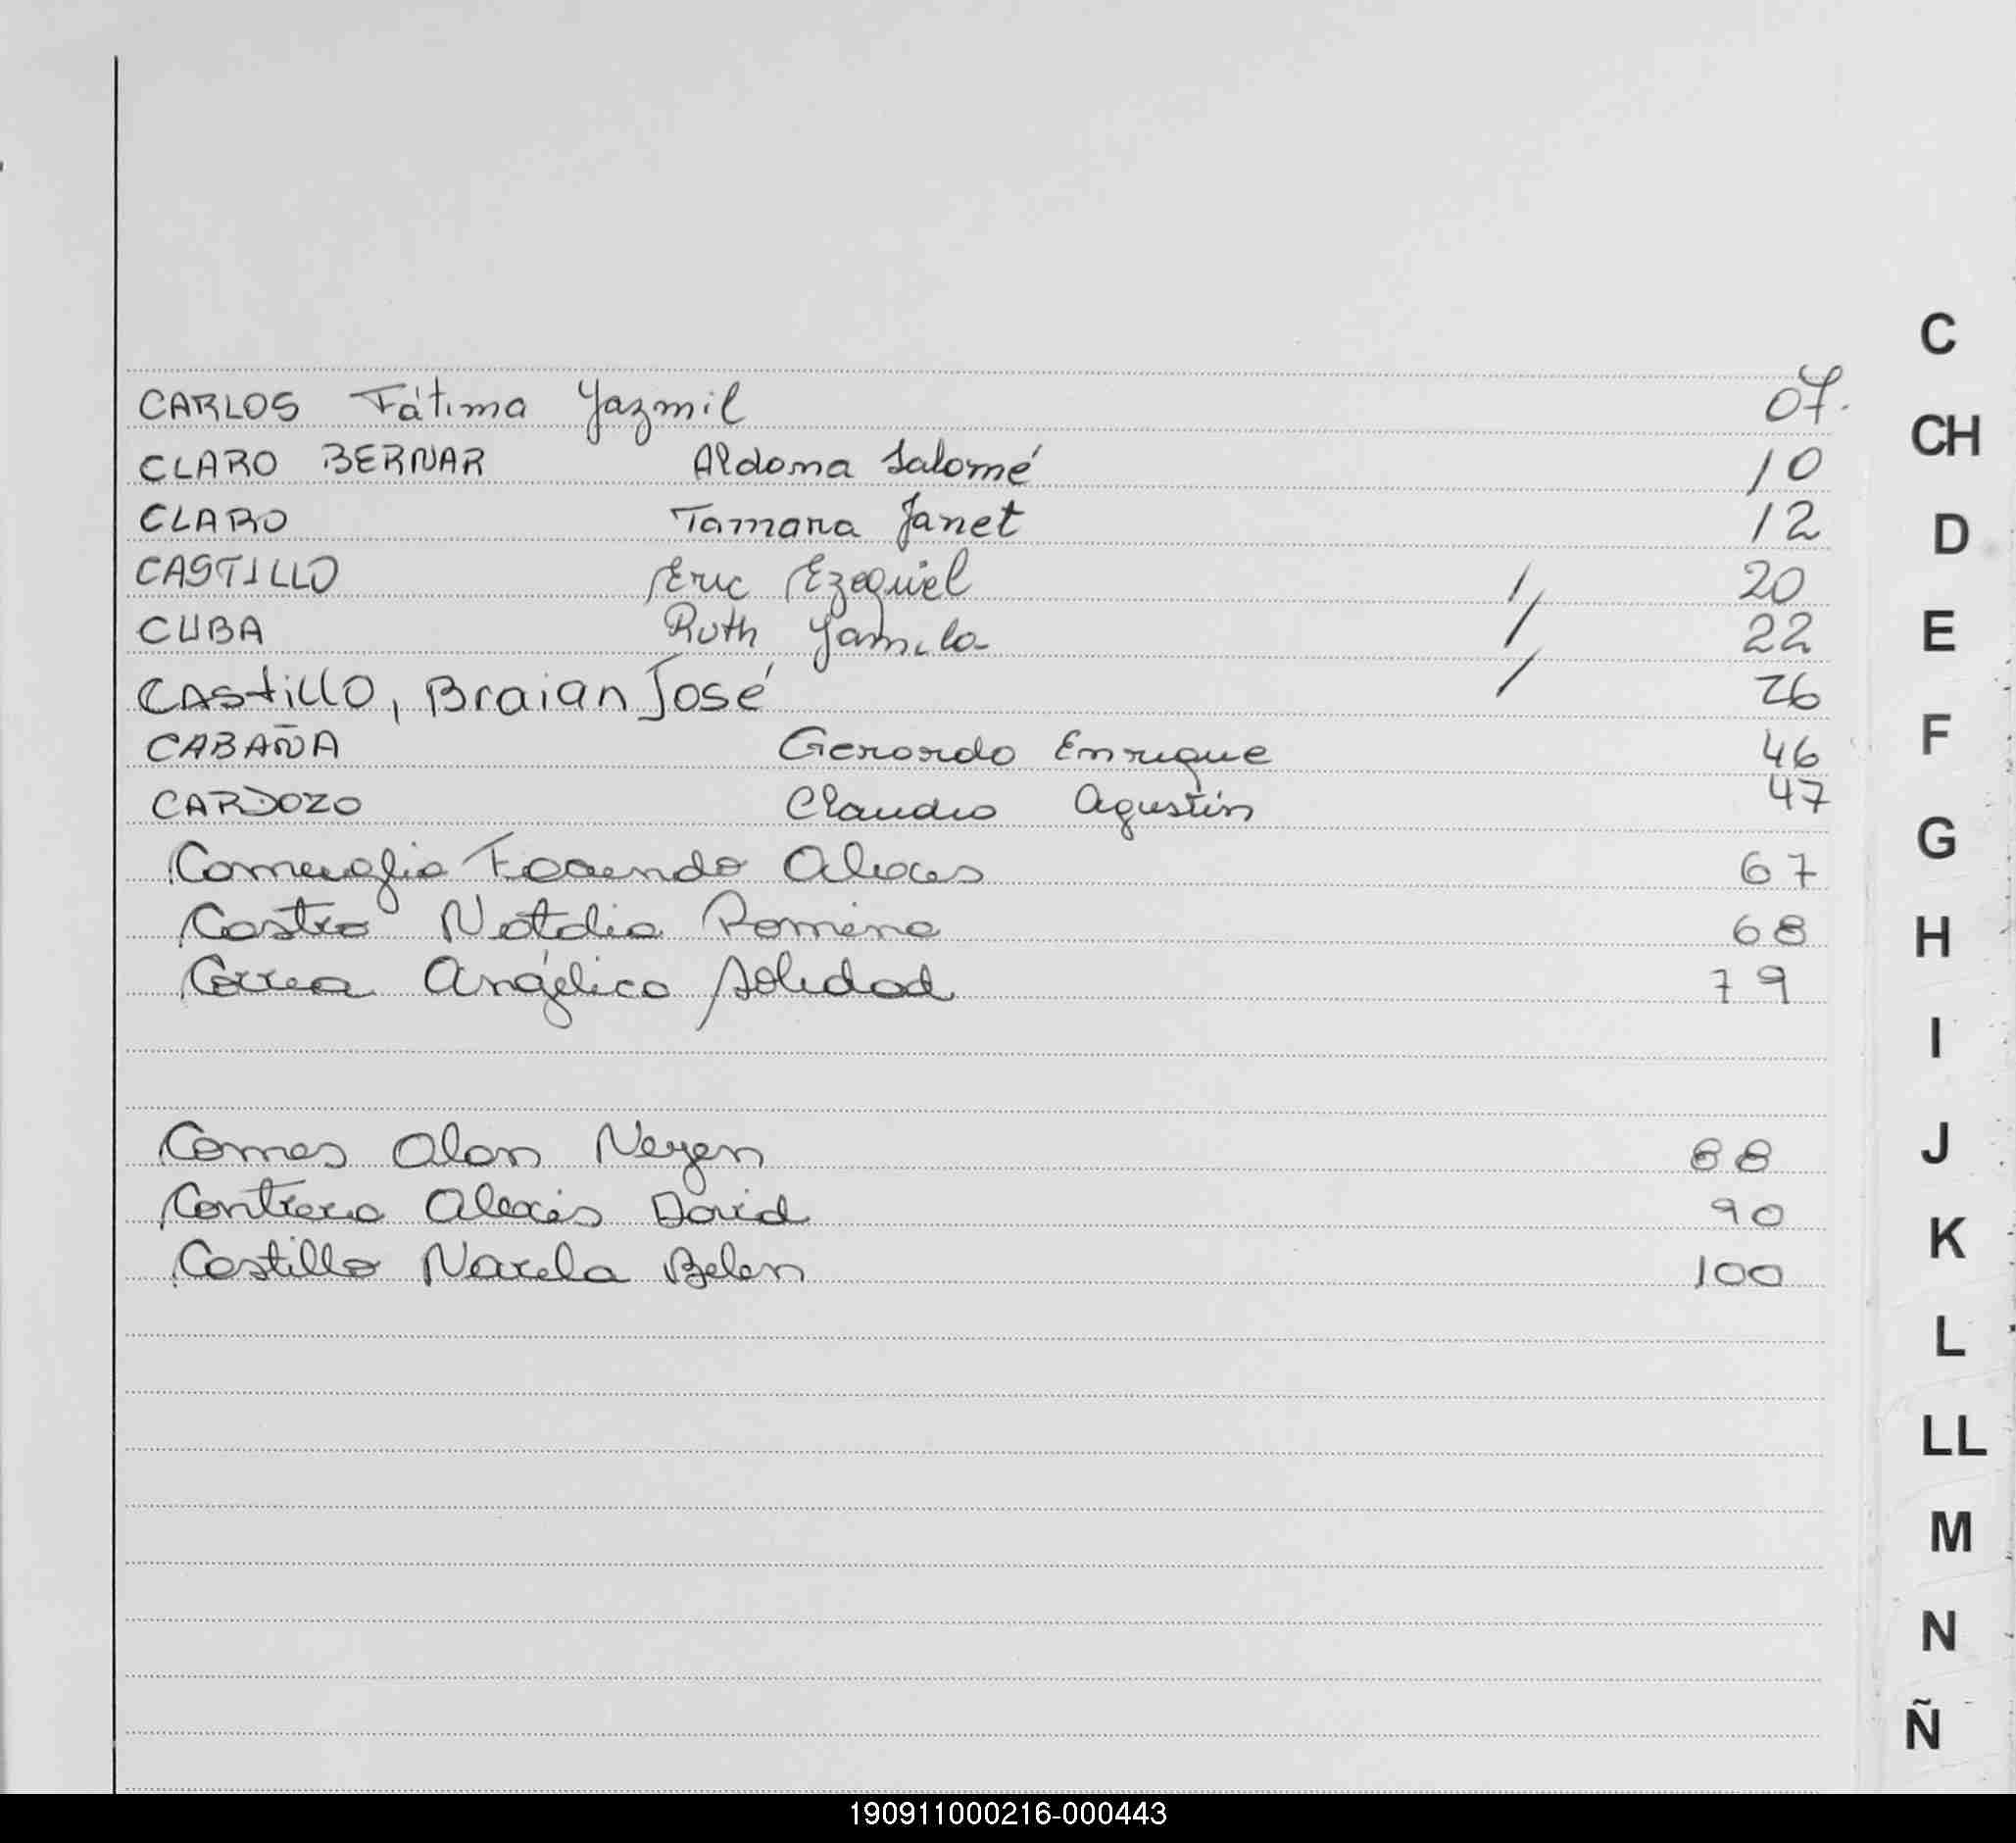 C
CARLOS Fátima Yazmil 07.
CH
CLARO BERNAR Aldana Salomé 10
CLARO Tamara Janet 12
D
CASTILLO Eric Ezequiel / 20
CUBA Ruth Yamila / 22
E
Castillo, Braian José / 26
CABAÑA Gerardo Enrique 46
F
CARDOZO Claudio Agustín 47
G
Facundo Alexis 67
Castro Natalia Romina 68
H
Correa Angélica Soledad 79
I
Comes Alan Neyen 88
J
Contrera Alexis David 90
K
Castillo Narela Belen 100
L
LL
M
N
Ñ
190911000216-000443